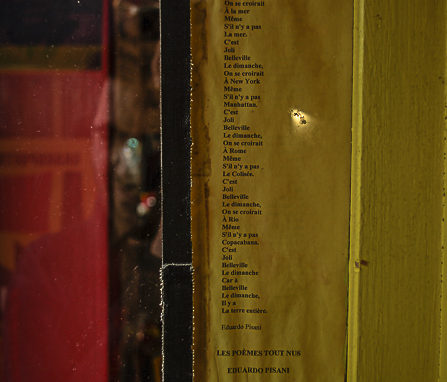 On se croirait
À la mer
Même
S'il n'y a pas
La mer.
C'est
Joli
Belleville
Le dimanche,
On se croirait
À New York
Même
S'il n'y a pas
Manhattan.
C'est
Joli
Belleville
Le dimanche,
On se croirait
À Rome
Même
S'il n'y a pas
Le Colisée.
C'est
Joli
Belleville
Le dimanche,
On se croirait
À Rio
Même
S'il n'y a pas
Copacabana.
C'est
Joli
Belleville
Le dimanche
Car à
Belleville
Le dimanche,
Il y a
La terre entière.
Eduardo Pisani
LES POÈMES TOUT NUS
EDUARDO PISANI